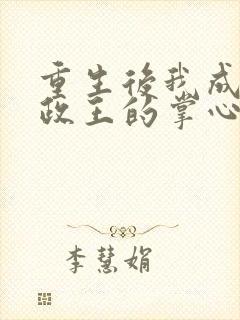 重生後我成
政王的掌心
李慧娟